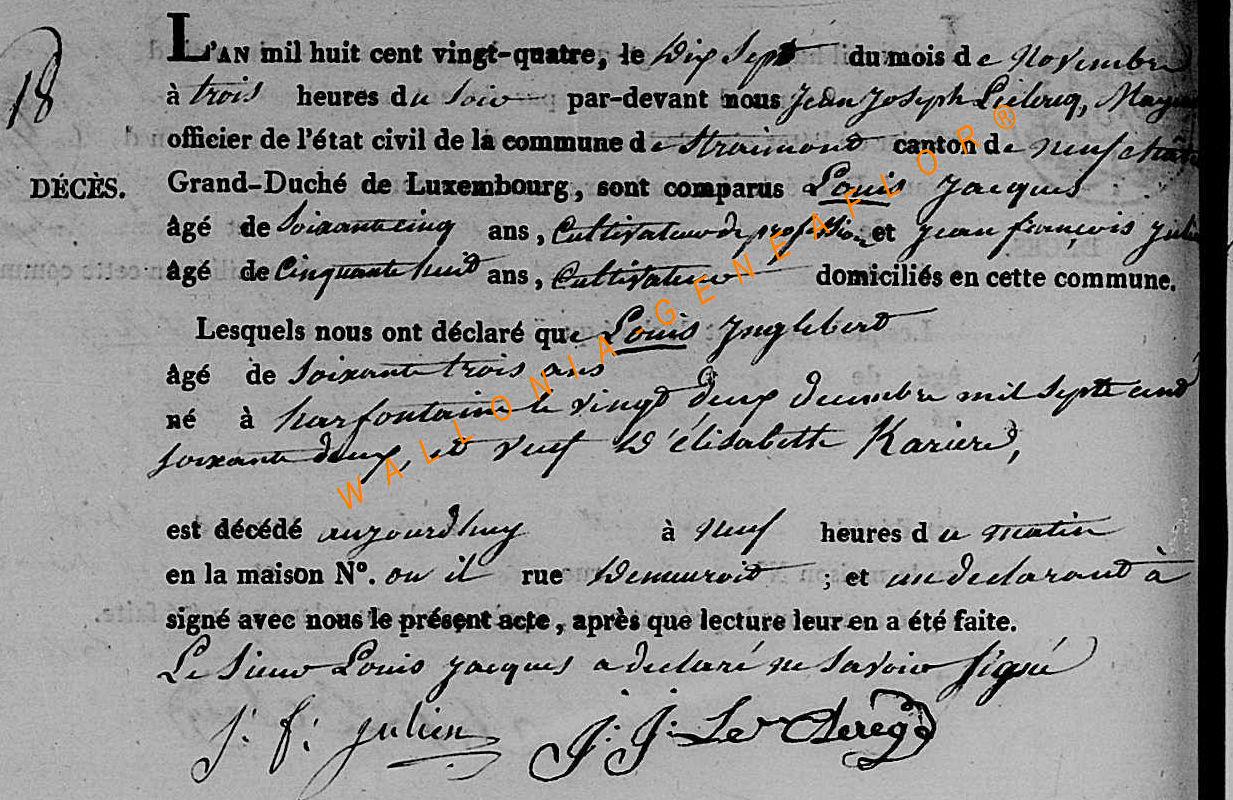 L'AN mil huit cent vingt-quatre, le Dix Sept du mois de novembre
18
à trois heures du soir par-devant nous Jean Joseph Leclercq, Mayeur
officier de l'état civil de la commune de Straimont canton de neufchâteau
DÉCÈS.
Grand-Duché de Luxembourg, sont comparus Louis Jacques
âgé de Soixante cinq ans, Cultivateur de profession et Jean françois Julien
âgé de Cinquante huit ans, Cultivateur domiciliés en cette commune.
Lesquels nous ont déclaré que Louis Inglebert
âgé de Soixante trois ans
né à harfontaine le vingt deux decembre mil Sept cent
soixante deux, et veuf D'élisabette Kariere,
est décédé aujourdhuy à neuf heures du matin
en la maison N°. ou il rue Demeuroit ; et un declarant à
signé avec nous le présent acte, après que lecture leur en a été faite.
Le Sieur Louis Jacques a declaré ne Savoir Signé
J: f: julien J: J: Le Clercq
WALLONIA-GENEAFLOR®